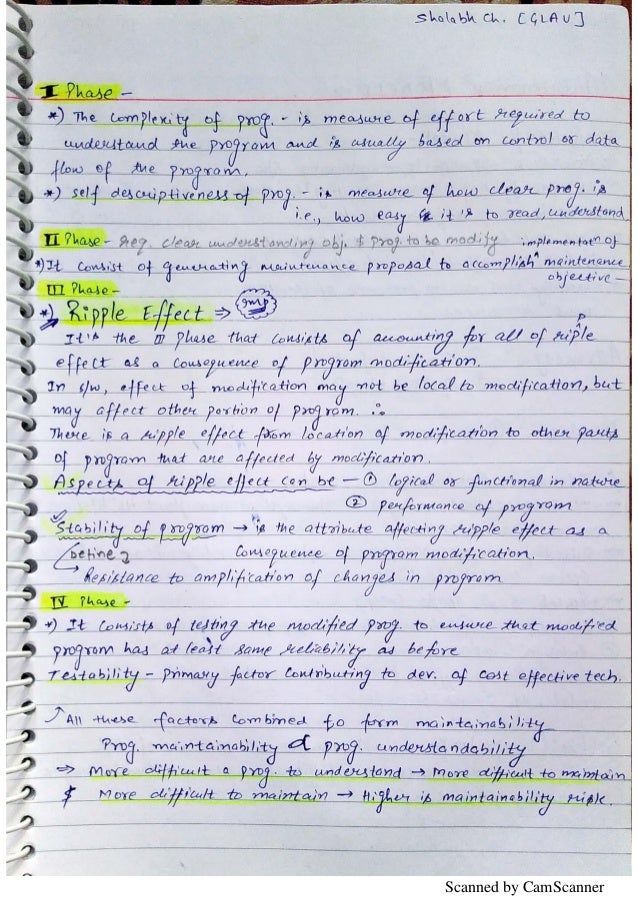 Sholabh Ch. [GLAU]
I Phase -
*) The complexity of prog. - is measure of effort required to
understand the program and is usually based on control or data
flow of the program.
*) self descriptiveness of prog. - is measure of how clear prog. is
i.e., how easy it is to read, understand
II Phase - req. clear understanding obj. & prog. to be modify
implementatn of
*) It consist of generating maintenance proposal to accomplish ^ maintenance
objective -
III Phase -
*) Ripple Effect ⇒ imp
It's the III phase that consists of accounting for all of ripple
effect as a consequence of program modification.
In s/w, effect of modification may not be local to modification, but
may affect other portion of program. ∴
There is a ripple effect from location of modification to other parts
of program that are affected by modification.
Aspects of ripple effect can be - ① logical or functional in nature
② performance of program
Stability of program → is the attribute affecting ripple effect as a
(Define) consequence of program modification.
→ Resistance to amplification of changes in program
IV Phase -
*) It consists of testing the modified prog. to ensure that modified
program has at least same reliability as before
Testability - primary factor contributing to dev. of cost effective tech.
↑ All these factors combined to form maintainability
Prog. maintainability α prog. understandability
⇒ More difficult a prog. to understand → More difficult to maintain
& More difficult to maintain → Higher is maintainability risk.
Scanned by CamScanner